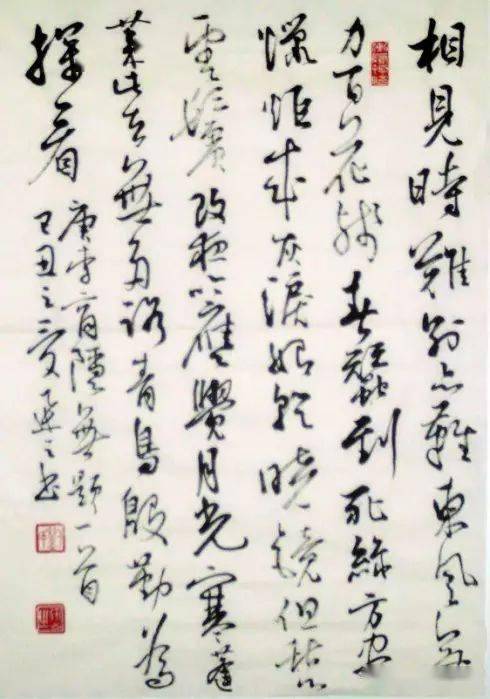 相見時難別亦難東風無
力百花殘春蠶到死絲方盡
蠟炬成灰淚始乾曉鏡但愁
雲鬢改夜吟應覺月光寒蓬
萊此去無多路青鳥殷勤為
探看
唐李商隱無題一首
己丑之夏書